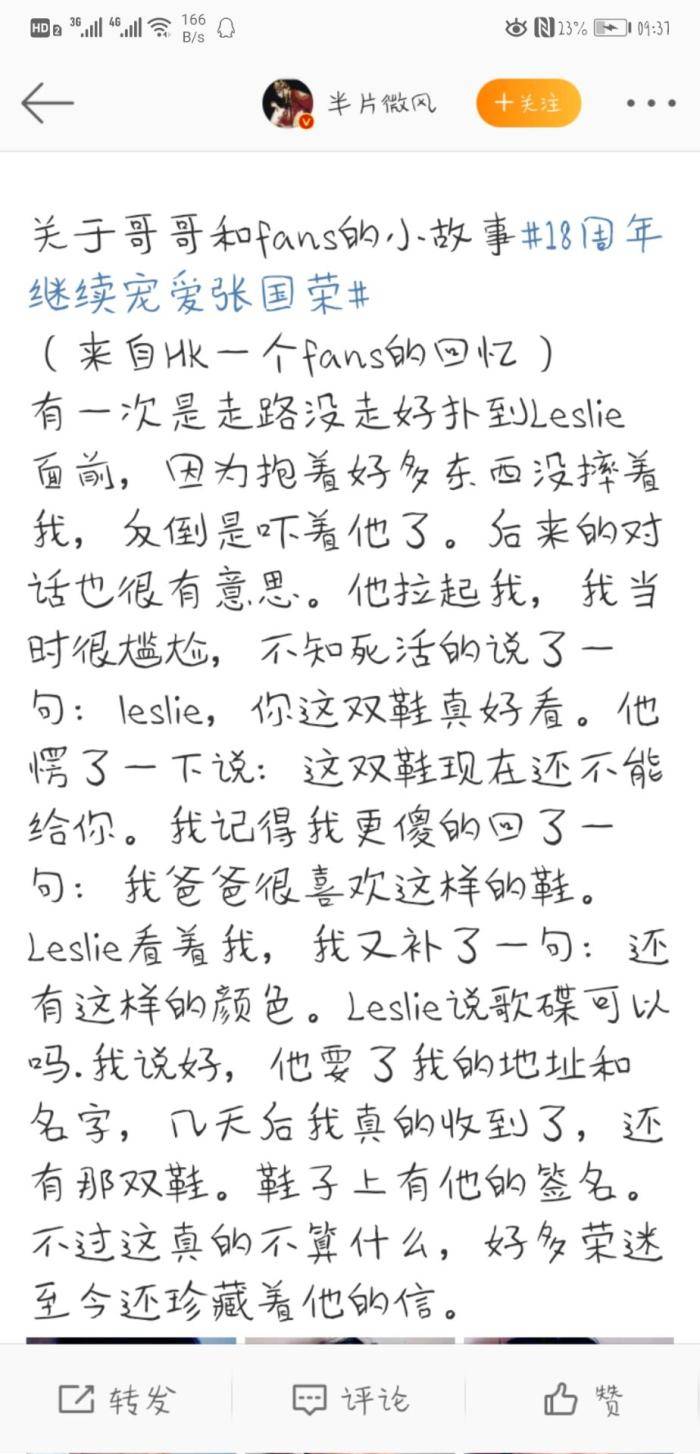 HD 2 3G 4G 166 B/s 23% 09:37
半片微风 +关注
关于哥哥和fans的小故事#18周年
继续宠爱张国荣#
（来自HK一个fans的回忆）
有一次是走路没走好扑到Leslie
面前，因为抱着好多东西没摔着
我，反倒是吓着他了。后来的对
话也很有意思。他拉起我，我当
时很尴尬，不知死活的说了一
句：leslie，你这双鞋真好看。他
愣了一下说：这双鞋现在还不能
给你。我记得我更傻的回了一
句：我爸爸很喜欢这样的鞋。
Leslie看着我，我又补了一句：还
有这样的颜色。Leslie说歌碟可以
吗.我说好，他要了我的地址和
名字，几天后我真的收到了，还
有那双鞋。鞋子上有他的签名。
不过这真的不算什么，好多荣迷
至今还珍藏着他的信。
转发 评论 赞